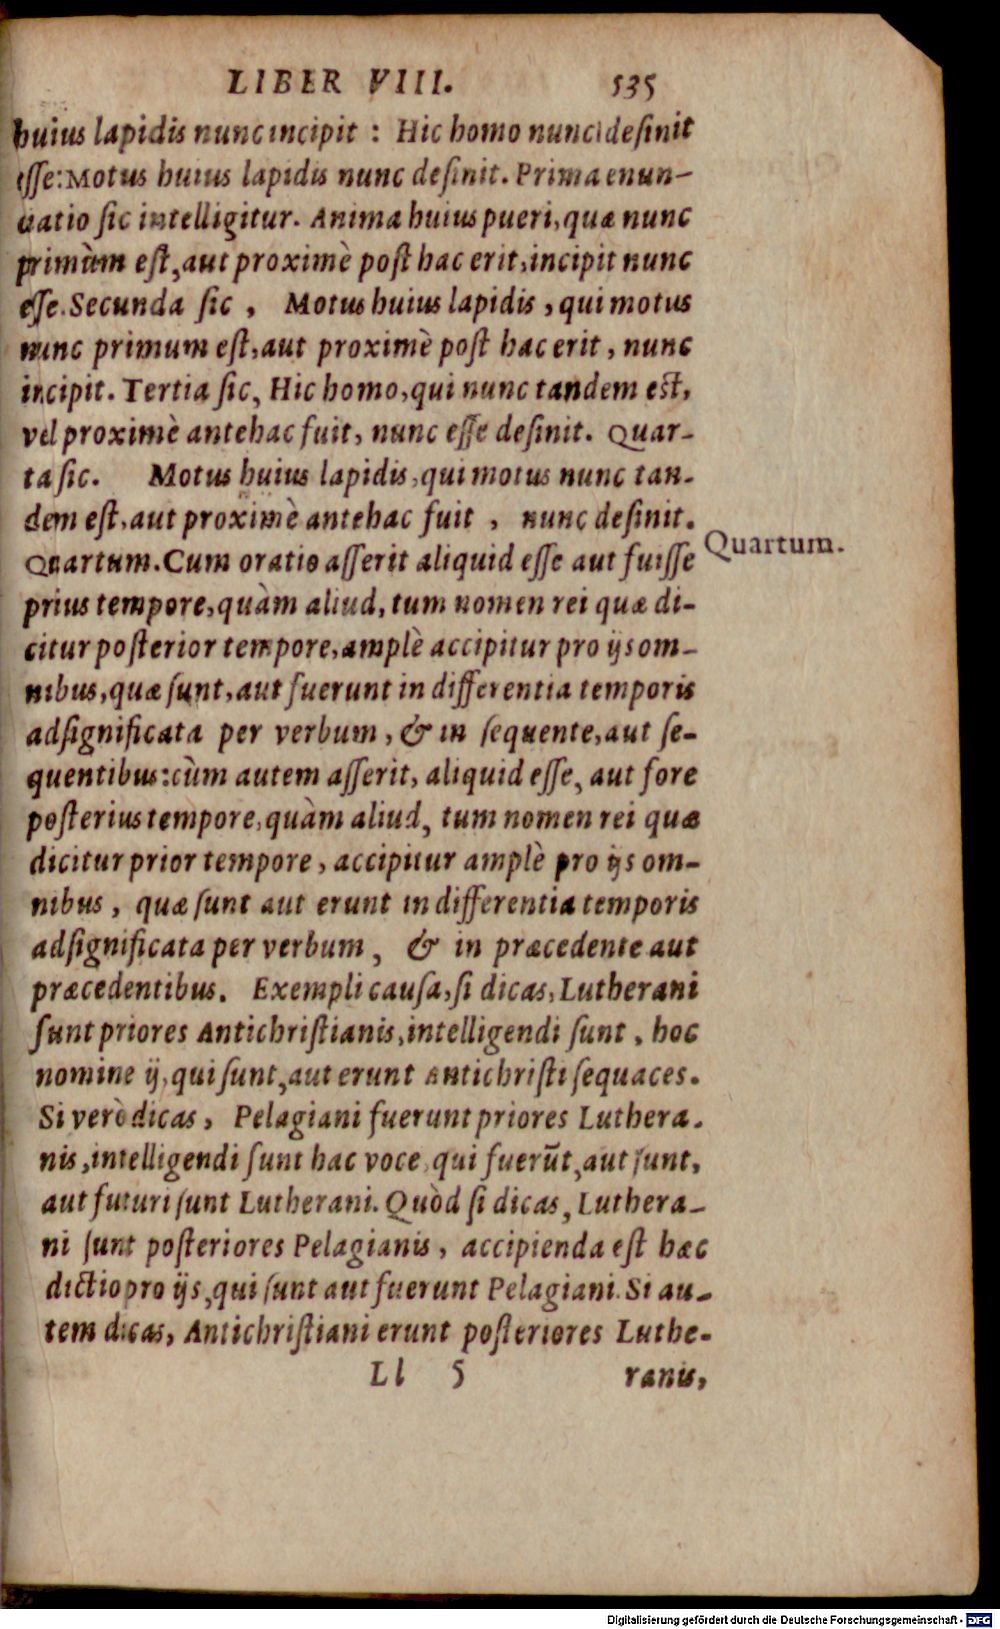 LIBER VIII. 535
huius lapidis nunc incipit : Hic homo nunc desinit
esse: Motus huius lapidis nunc desinit. Prima enun-
tiatio sic intelligitur. Anima huius pueri, quæ nunc
primùm est, aut proximè post hac erit, incipit nunc
esse. Secunda sic , Motus huius lapidis , qui motus
nunc primum est, aut proximè post hac erit , nunc
incipit. Tertia sic, Hic homo, qui nunc tandem est,
vel proximè antehac fuit, nunc esse desinit. Quar-
ta sic. Motus huius lapidis, qui motus nunc tan-
dem est, aut proximè antehac fuit , nunc desinit.
Quartum. Cum oratio asserit aliquid esse aut fuisse
Quartum.
prius tempore, quàm aliud, tum nomen rei quæ di-
citur posterior tempore, amplè accipitur pro ijs om-
nibus, quæ sunt, aut fuerunt in differentia temporis
adsignificata per verbum , & in sequente, aut se-
quentibus: cùm autem asserit, aliquid esse, aut fore
posterius tempore, quàm aliud, tum nomen rei quæ
dicitur prior tempore , accipitur amplè pro ijs om-
nibus , quæ sunt aut erunt in differentia temporis
adsignificata per verbum , & in præcedente aut
præcedentibus. Exempli causa, si dicas, Lutherani
sunt priores Antichristianis, intelligendi sunt , hoc
nomine ij, qui sunt, aut erunt Antichristi sequaces.
Si verò dicas , Pelagiani fuerunt priores Luthera-
nis, intelligendi sunt hac voce, qui fuerūt, aut sunt,
aut futuri sunt Lutherani. Quòd si dicas, Luthera-
ni sunt posteriores Pelagianis , accipienda est hæc
dictio pro ijs, qui sunt aut fuerunt Pelagiani. Si au-
tem dicas, Antichristiani erunt posteriores Luthe-
Ll 5 ranis,
Digitalisierung gefördert durch die Deutsche Forschungsgemeinschaft - DFG